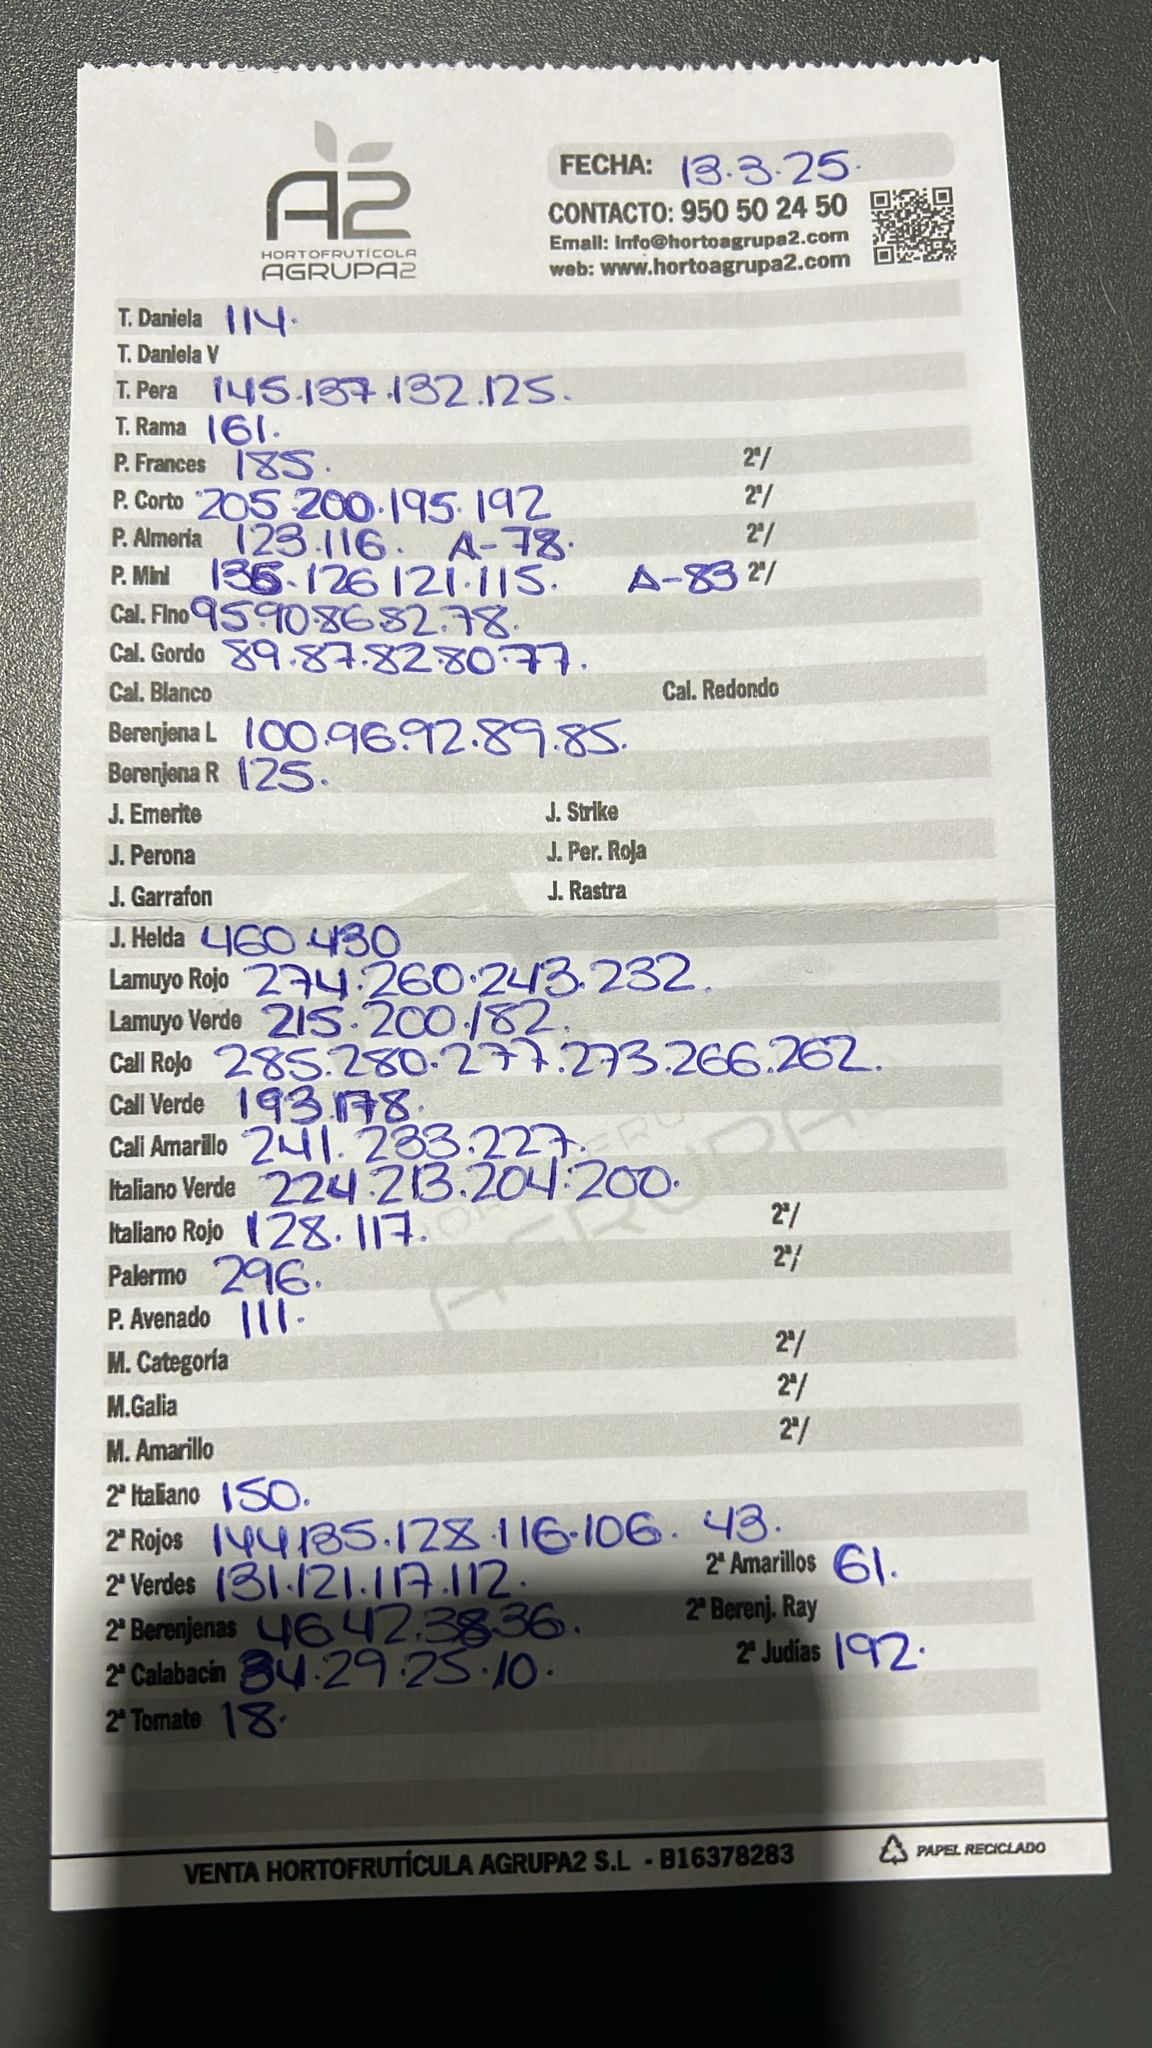 A2
HORTOFRUTÍCOLA
AGRUPA2
FECHA: 13.3.25.
CONTACTO: 950 50 24 50
Email: info@hortoagrupa2.com
web: www.hortoagrupa2.com
T. Daniela 114.
T. Daniela V
T. Pera 145.137.132.125.
T. Rama 161.
P. Frances 185. 2ª/
P. Corto 205.200.195.192 2ª/
P. Almería 123.116. A-78. 2ª/
P. Mini 136.126 121.115. A-83 2ª/
Cal. Fino 95.90.86.82.78.
Cal. Gordo 89.87.82.80.77.
Cal. Blanco Cal. Redondo
Berenjena L 100.96.92.89.85.
Berenjena R 125.
J. Emerite J. Strike
J. Perona J. Per. Roja
J. Garrafon J. Rastra
J. Helda 460.430
Lamuyo Rojo 274.260.243.232.
Lamuyo Verde 215.200.182.
Cali Rojo 285.280.277.273.266.262.
Cali Verde 193.178.
Cali Amarillo 241.233.227.
Italiano Verde 224.213.204.200.
Italiano Rojo 128.117. 2ª/
Palermo 296. 2ª/
P. Avenado 111.
M. Categoría 2ª/
M.Galia 2ª/
M. Amarillo 2ª/
2ª Italiano 150.
2ª Rojos 144.135.128.116.106. 43.
2ª Verdes 131.121.117.112. 2ª Amarillos 61.
2ª Berenjenas 46.42.38.36. 2ª Berenj. Ray
2ª Calabacín 34.29.25.10. 2ª Judías 192.
2ª Tomate 18.
VENTA HORTOFRUTÍCULA AGRUPA2 S.L - B16378283
PAPEL RECICLADO